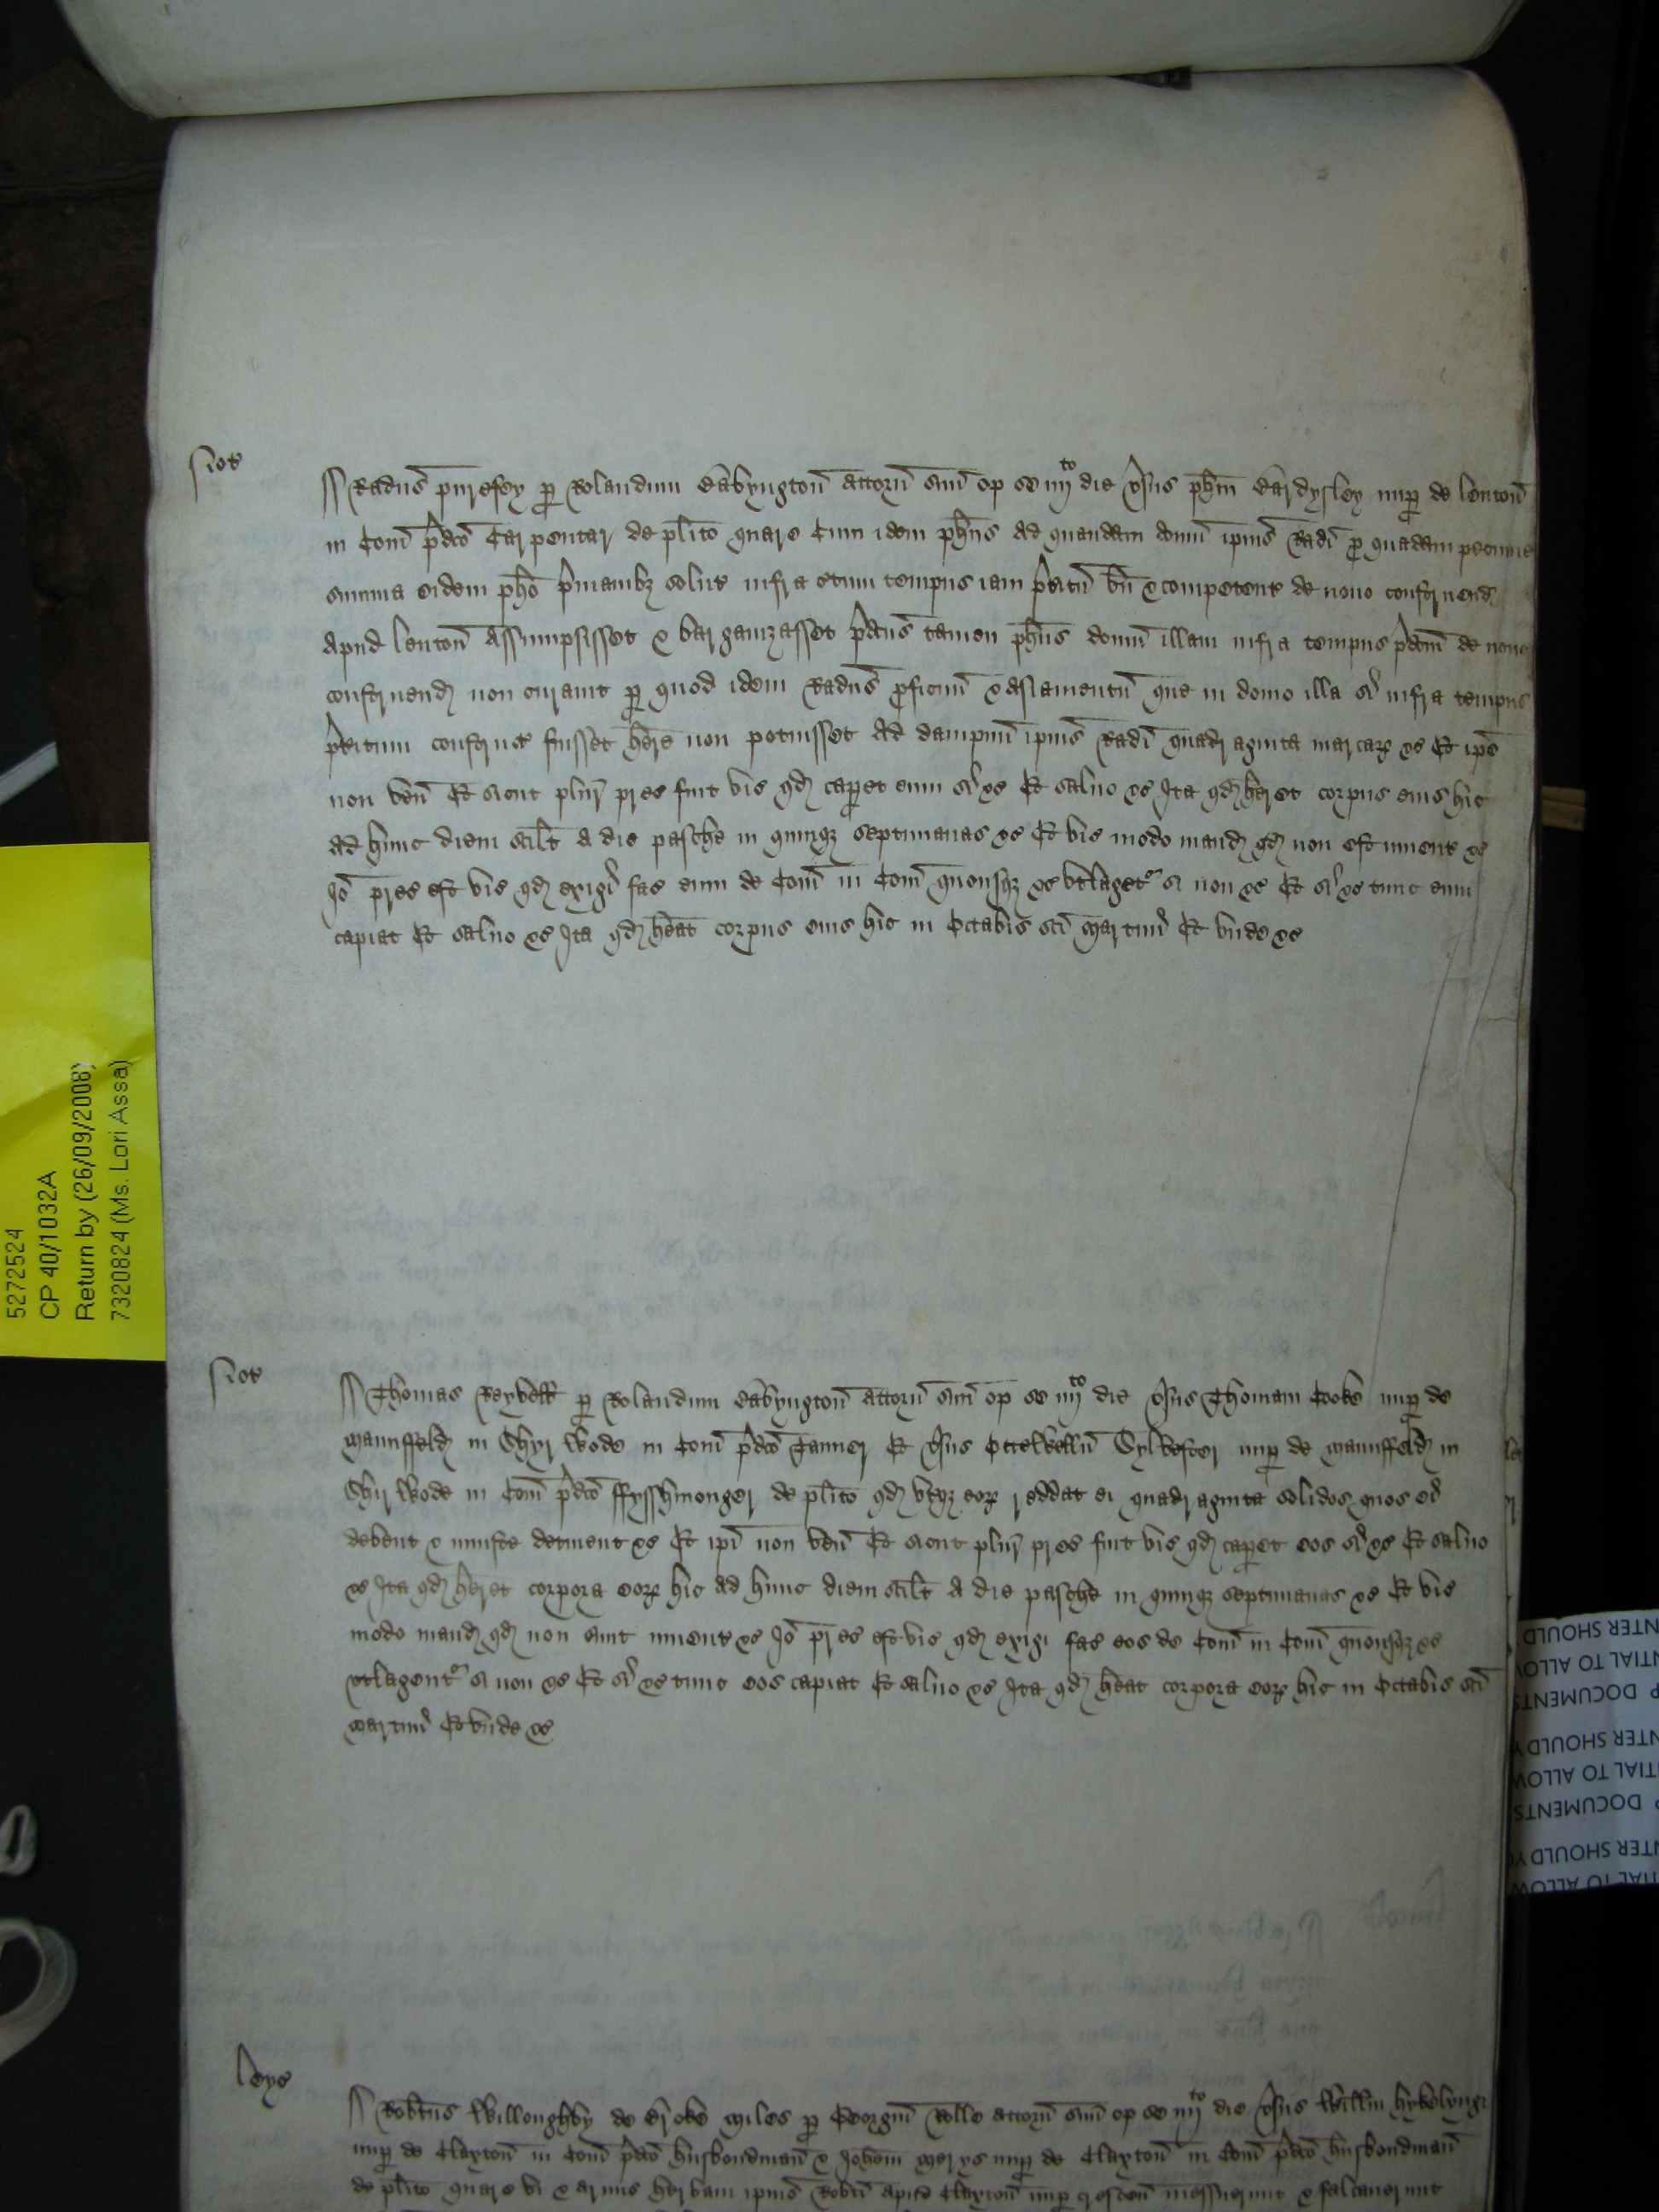 Not
Radus purefey p Rolandum Babyngton attorn suu op se iiij to die vsus phm Bardysley nup de lenton
in Com pdco Carpenter de plito quare cum idem phus ad quandam domu ipius Radi p quadam pecunie
summa eidem pho pmanibz solut infra ctum tempus iam pteritu bn & competent de nouo construend
apud lenton assumpsisset & barganizasset pdcus tamen phus domu illam infra tempus pdcm de nouo
construend non curauit p quod idem Radus pficuu & asiamentu que in domo illa si infra tempus
pteritum construct fuisset here non potuisset Ad dampnu ipius Radi quadraginta marcar &c Et ipe
non ven Et sicut plur prec fuit vic qd caperet eum si &c Et saluo &c Ita qd heret corpus eius hic
ad hunc diem scilt a die pasche in quinqz septimanas &c Et vic modo mand qd non est inuent &c
Io prec est vic qd exigi fac eum de Com in Com quousqz &c vtlaget si non &c Et si &c tunc eum
capiat Et saluo &c Ita qd heat corpus eius hic in Octabis sci Martini Et vnde &c
Not
Thomas p Rolandum Babyngton attorn suu op se iiij to die vsus Thomam Cooke nup de
Maunffeld in Shyrwode in Com pdco Tanner Et vsus Ottewellu Sylvester nup de Maunffeld in
Shirwode in Com pdco ffysshmonger de plito qd vtqz eor reddat ei quadraginta solidos quos ei
debent & iniuste detinent &c Et ipi non ven Et sicut plur prec fuit vic qd caperet eos si &c Et saluo
&c Ita qd heret corpora eor hic ad hunc diem scilt a die pasche in quinqz septimanas &c Et vic
modo mand qd non sunt inuent &c Io prec est vic qd exigi fac eos de Com in Com quousqz &c
vtlagent si non &c Et si &c tunc eos capiat Et saluo &c Ita qd heat corpora eor hic in Octabis sci
Martini Et vnde &c
leyc
Robtus Willoughby de Broke Miles p Georgiu Rolle attorn suu op se iiij to die vsus Willm
nup de Claxton in Com pdco husbondman & Johem Merys nup de Claxton in Com pdco husbondman
de plito quare vi & armis herbam ipius Robti apud Claxton nup crescen messuerunt & falcauerunt
5272524
CP 40/1032A
Return by (26/09/2008)
7320824 (Ms. Lori Assa)
NTER SHOULD
NTIAL TO ALLOW
P DOCUMENTS
NTER SHOULD Y
TIAL TO ALLOW
P DOCUMENTS
NTER SHOULD YO
TIAL TO ALLOW